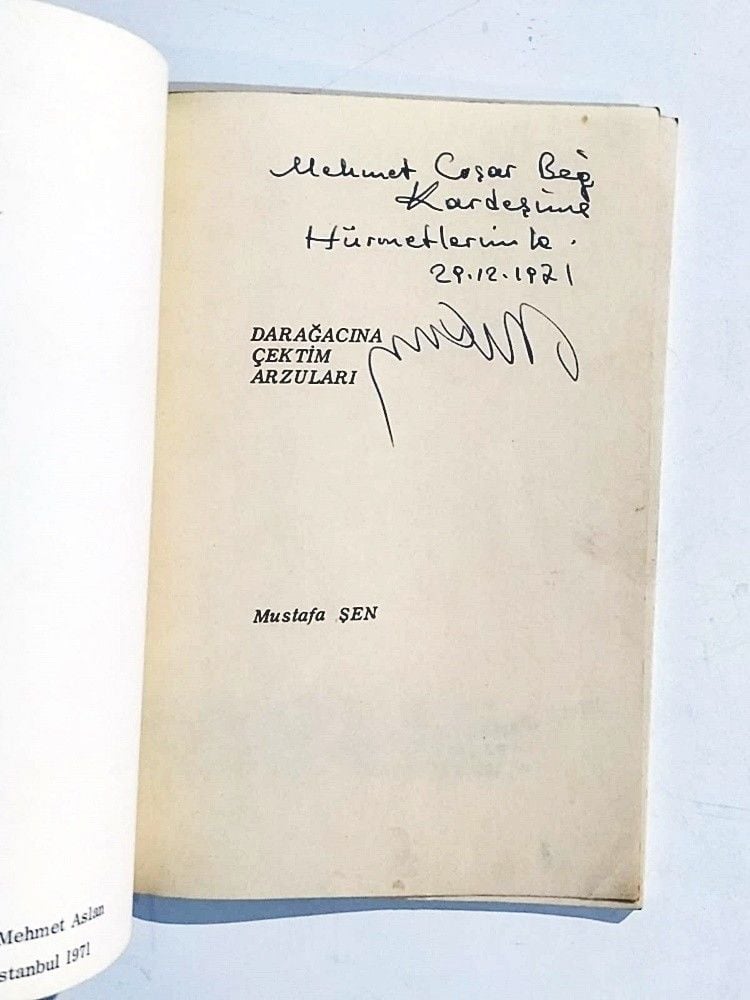 Mehmet Coşar Beğ
Kardeşime
Hürmetlerimle.
29.12.1971
DARAĞACINA
ÇEKTİM
ARZULARI
Mustafa ŞEN
Mehmet Aslan
stanbul 1971